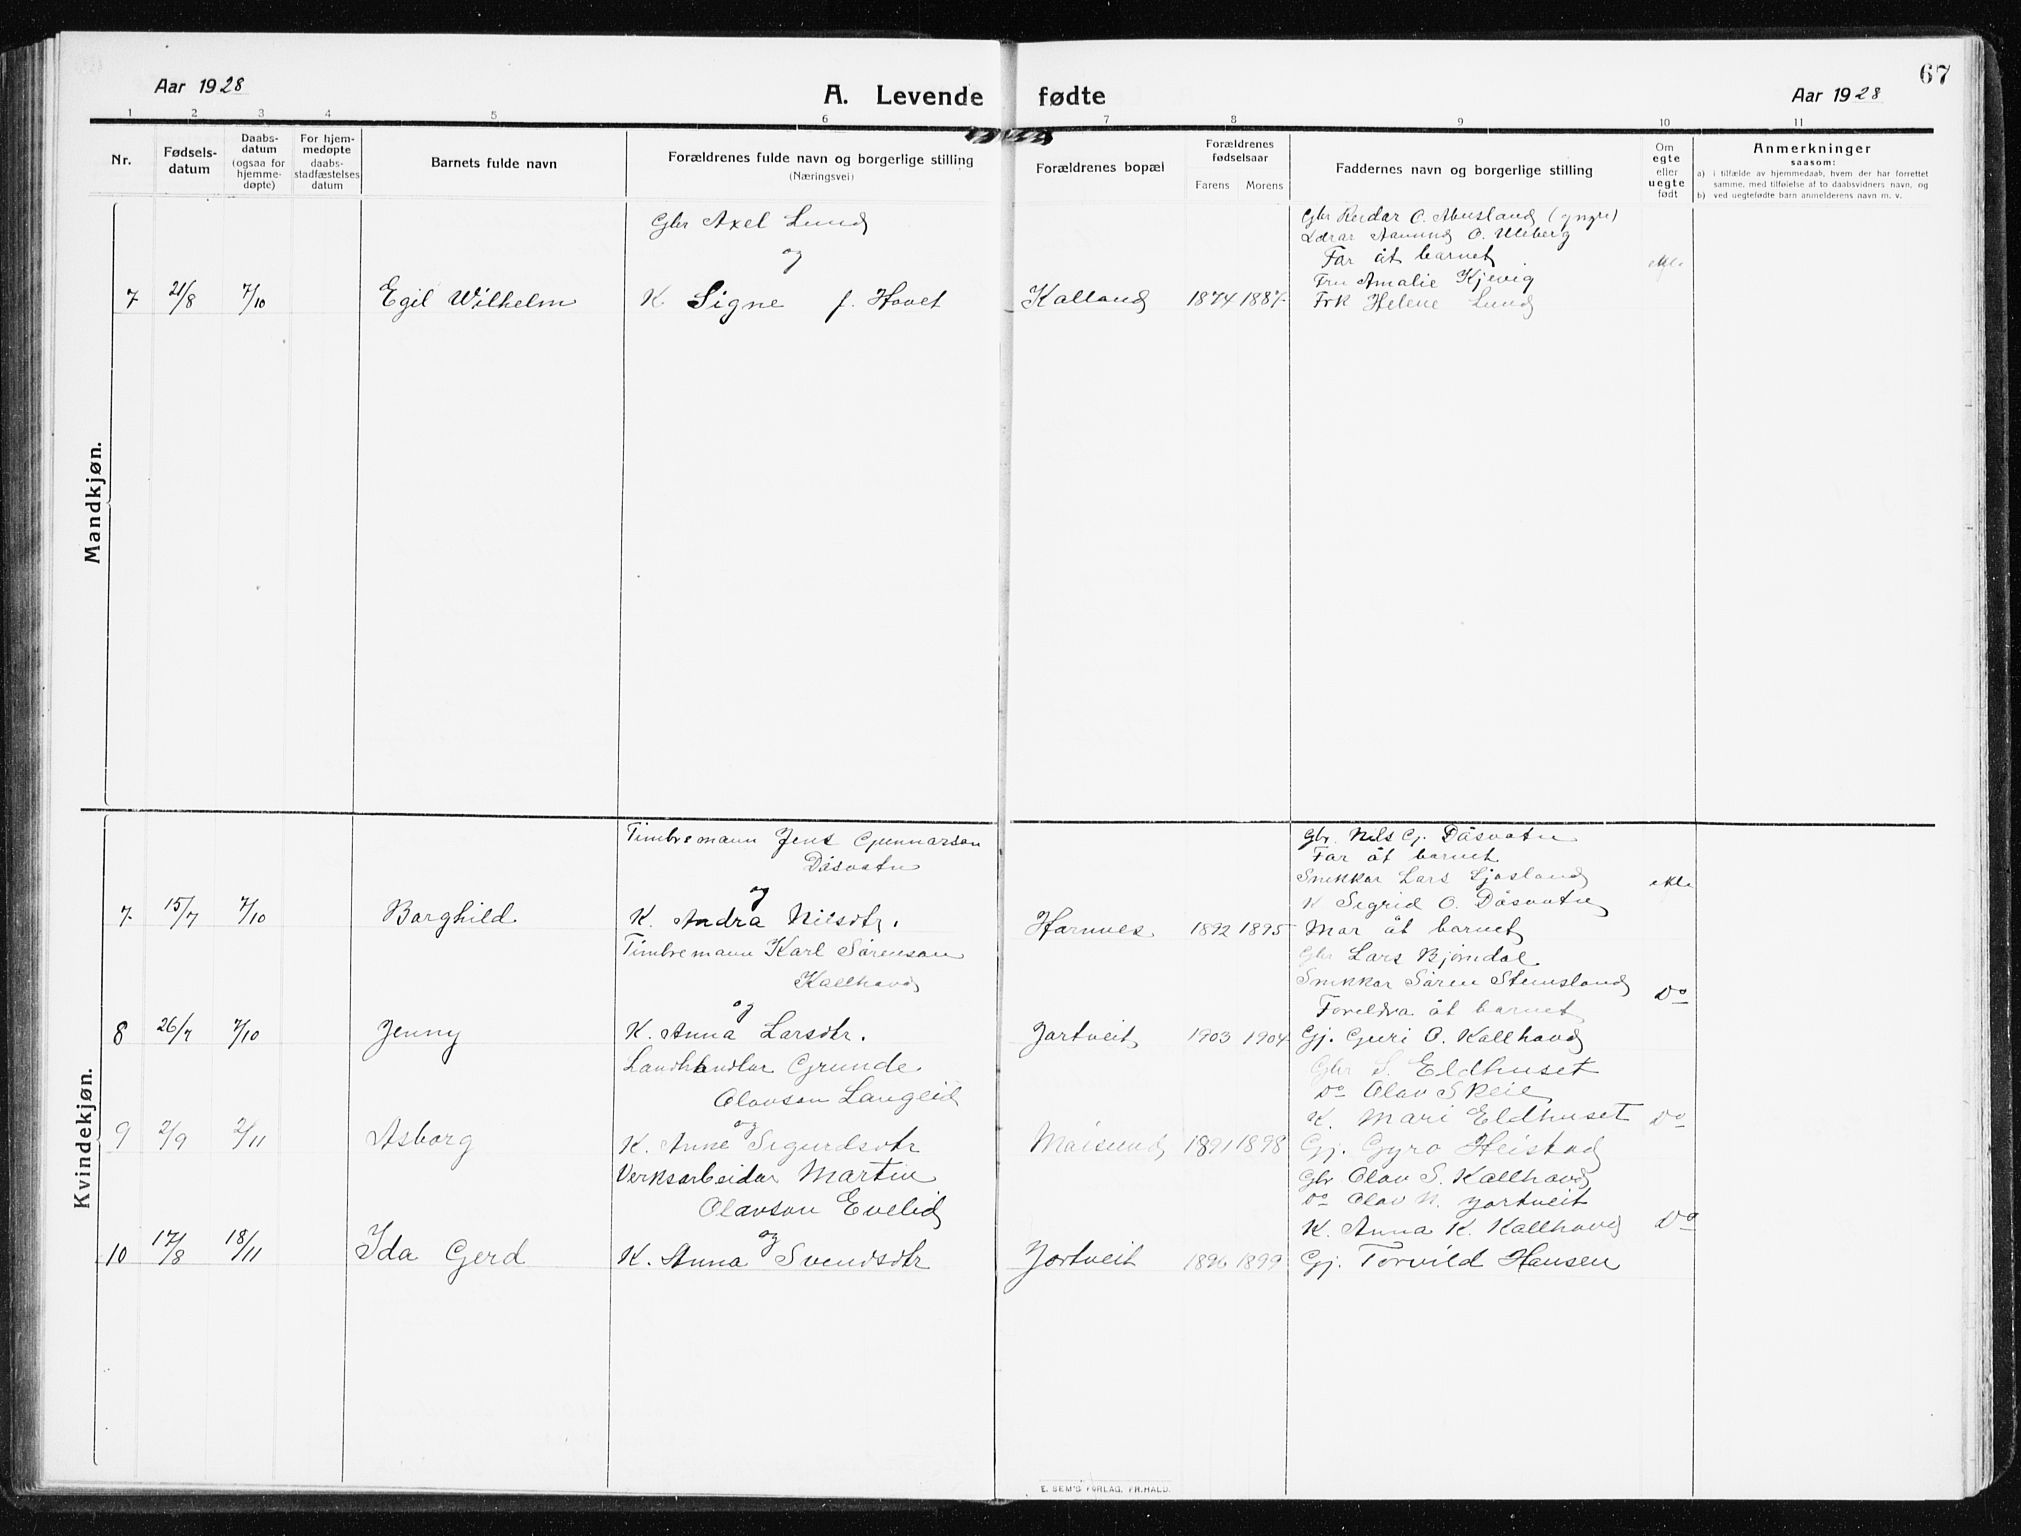 67
Aar 1928
A. Levende fødte
Aar 1928
1 2 3 4 5 6 7 8 9 10 11
Nr.
Fødsels-
datum
Daabs-
datum
(ogsaa for
hjemme-
døpte)
For hjem-
medøpte
daabs-
stadfæstelses
datum
Barnets fulde navn
Forældrenes fulde navn og borgerlige stilling
(Næringsvei)
Forældrenes bopæl
Forældrenes
fødselsaar
Farens Morens
Faddernes navn og borgerlige stilling
Om
egte
eller
uegte
født
Anmerkninger
saasom:
a) i tilfælde av hjemmedaab, hvem der har forrettet
samme, med tilføielse af to daabsvidners navn, og
b) ved uegtefødte barn anmelderens navn m. v.
Mandkjøn.
7 21/8 7/10 Egil Wilhelm
Gbr Axel Lund
og
K Signe f. Hovet
Kalland 1874 1887
Gbr Reidar O. Abusland (yngre)
Lærar Aanund O. Uleberg
Far åt barnet
Fru Amalie Kjevig
Frk Helene Lund
ekte
Kvindekjøn.
7 15/7 7/10 Borghild
Timbremann Jens Gunnarson
Dåsvatn
og
K. Andra Nilsdtr.
Hornnes 1892 1895
Gbr. Nils Gj. Dåsvatn
Far åt barnet
Snikkar Lars Ljosland
K Sigrid O. Dåsvatn
Mor åt barnet
ekte
8 26/7 7/10 Jenny
Timbremann Karl Sørenson
Kallhovd
og
K. Anna Larsdtr.
Jortveit 1903 1904
Gbr Lars Bjørndal
Snikkar Søren Stemsland
Foreldra åt barnet
Gj. Guri O. Kallhovd
Do
9 2/9 2/11 Asborg
Landhandlar Grunde
Olavson Langeid
og
K. Anne Sigurdsdtr
Moisund 1891 1898
Gbr S. Eldhuset
Do Olav Skeie
K. Mari Eldhuset
Gj. Gyro Heistad
Do
10 17/8 18/11 Ida Gerd
Verksarbeidar Martin
Olavson Evelid
og
K. Anna Svendsdtr
Jortveit 1896 1899
Gbr Olav S. Kallhovd
Do Olav N. Jortveit
K. Anna K. Kallhovd
Gj. Torvild Hansen
Do
E. SEM'S FORLAG, FR.HALD.